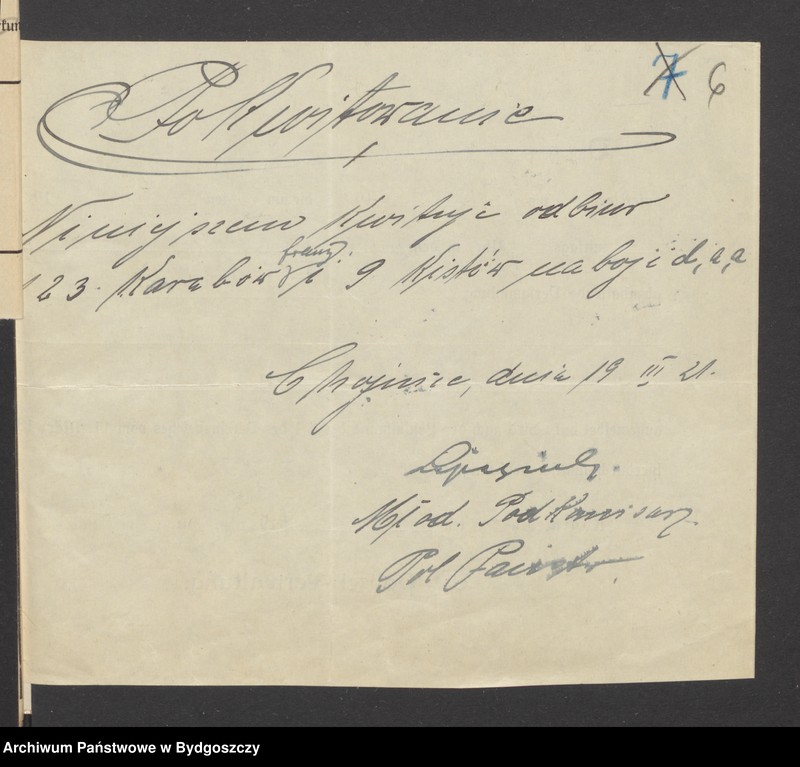 7 6
Pokwitowanie
Niniejszem Kwituję odbiur
franz.
123. Karabów i 9 Kistów naboji d, a, a
Chojnice, dnia 19 III 21.
Młod. PodKomisarz
Pol Państw.
Archiwum Państwowe w Bydgoszczy